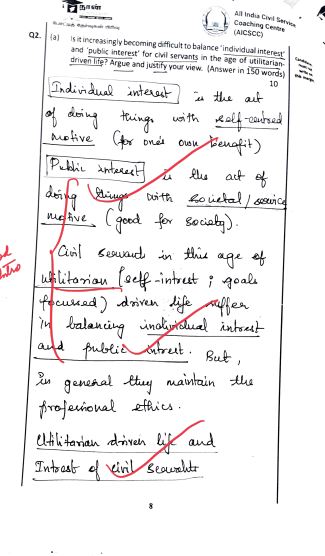 நான்
All India Civil Service
Coaching Centre
(AICSCC)
Q2. (a) Is it increasingly becoming difficult to balance 'individual interest'
and 'public interest' for civil servants in the age of utilitarian-
driven life? Argue and justify your view. (Answer in 150 words)
10
Individual interest is the act
of doing things with self-centred
motive (for one's own benefit)
Public interest is the act of
doing things with societal / service
motive (good for society).
Civil servants in this age of
utilitarian (self-intrest ; goals
focussed) driven life suffer
in balancing individual intrest
and public intrest. But,
in general they maintain the
professional ethics.
Utilitarian driven life and
Intrest of civil servants
8